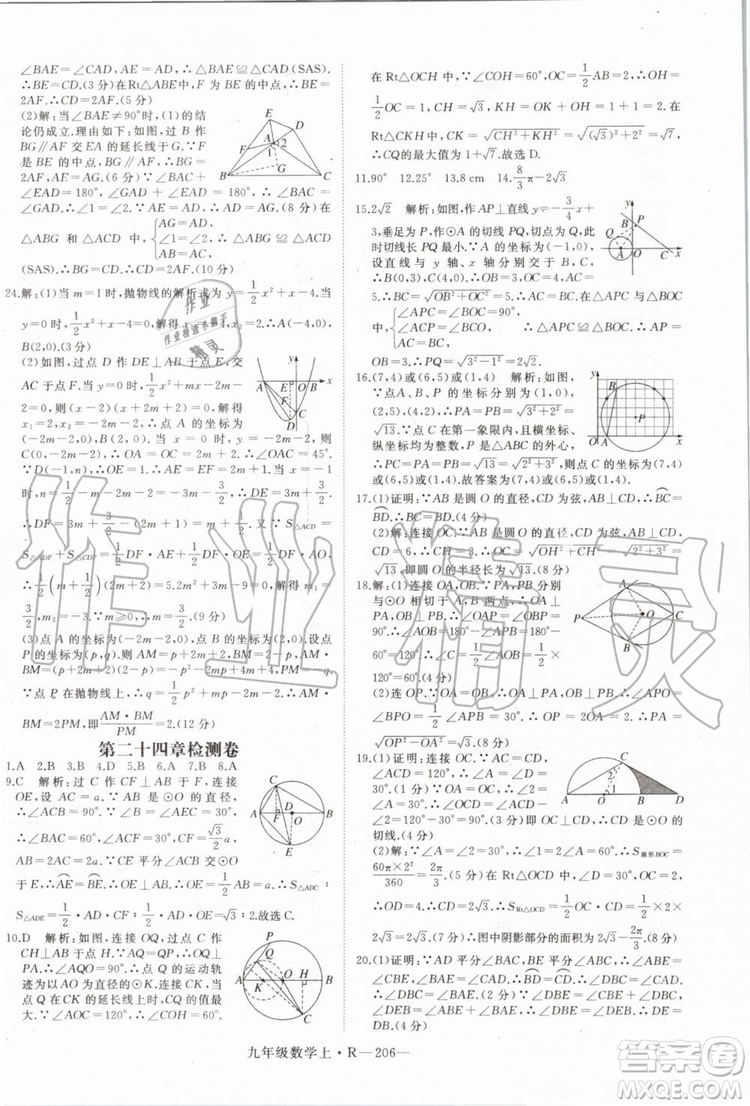 ∠BAE=∠CAD, AE=AD, ∴△BAE≌△CAD(SAS).
∴BE=CD.(3分)∵点F为BE的中点,∴BE=
2AF.∴CD=2AF.(5分)
(2)解:当∠BAE≠90°时,(1)的结
论仍成立.理由如下:如图,过B作
BG∥AF交EA的延长线于G.∵F
是BE的中点,BG∥AF,∴BG=
2AF,AG=AE=AD.∵∠BAC+
∠EAD=180°,∴∠CAD+
∠EAB=180°.∵∠EAB+
∠1=180°,∴∠1=∠2.(8分)在
△ABG和△ACD中,
{AG=AD,
∠1=∠2,
AB=AC,
∴△ABG≌△ACD
(SAS).∴BG=CD.∴CD=2AF.(10分)
24.解:(1)当m=1时,抛物线的解析式为y=1/2x²+x-4.
当y=0时,1/2x²+x-4=0,解得x₁=-4,x₂=2.∴A(-4,0),
B(2,0).(3分)
(2)如图,过点D作DE⊥AB于点E,
交AC于点F.当y=0时,1/2x²+
(m-2)·x+x-2m=0,解得
x₁=-2m,x₂=2.∴点A的坐标为
(-2m,0),B(2,0).当x=0时,y=-2m,∴C的坐标为
(0,-2m).∴OA=OC=2m.∴∠OAC=45°.
∵D(-1,n),∴OE=1.∴AE=EF=2m-1.当x=-1
时,n=1/2-(m-2)-1-2m=3/2-3m,∴DE=3m-3/2.
∴DF=3m-3/2-(2m-1)=m-1/2.又∵S△ACD=
S△ADF+S△CDF=1/2DF·AE+1/2DF·OE=1/2DF·AO,
∴1/2(m-1/2)·2m=5,2m²-m-10=0,解得m₁=
5/2,m₂=-2.∵m>1/2,∴m=5/2.(9分)
(3)点A的坐标为(-2m,0),点B的坐标为(2,0),设点
P的坐标为(p,q).则AM=p+2m,BM=2-p,AM·
BM=(p+2m)(2-p)=-p²-2mp+2p+4m,PM=-q.
∵点P在抛物线上,∴q=1/2p²+mp-p-2m.∴AM·
BM=2PM,即AM·BM/PM=2.(12分)
第二十四章检测卷
1.A 2.B 3.B 4.D 5.D 6.B 7.B 8.A
9.C 解析:过C作CF⊥AD于F,连接
OE,设AC=a.∵AB是⊙O的直径,
∴∠ACB=90°.∵∠B=∠AEC=30°,
∴∠CAB=60°,AB=2a.∴CF=√3/2a,
∴AB=2AC=2a.∵CE平分∠ACB交
⊙O于E,∴AE=BE.∴OE⊥AB,OE=1/2AB=a.∴S△ACD:
S△ADE=1/2·AD·CF:1/2·AD·OE=√3:2.故选C.
10.D 解析:如图,连接OQ,过点C作
CH⊥AB于H.∵AQ=QP,∴OQ⊥
PA.∴∠AQO=90°.∴点Q的运动轨
迹为以AO为直径的⊙K.连接CK,当
点Q在CK的延长线上时,CQ的值最
大.∵∠AOC=120°,∴∠COH=60°.
在Rt△OCH中,∵∠COH=60°,OC=2,∴OH=
1/2OC=1,CH=√3,KH=OK+OH=1+1=2.在
Rt△CKH中,CK=√CH²+KH²=√(√3)²+2²=√7,
∴CQ的最大值为1+√7.故选D.
11.90° 12.25° 13.8 cm 14.8/3π-2√3
15.2√2 解析:如图,作AP⊥直线y=-3/4x+
3,垂足为P,作⊙A的切线PQ,切点为Q,此
时切线长PQ最小.∵A的坐标为(-1,0),
设直线与y轴、x轴分别交于B、C,
∴B(0,3),C(4,0).∴OB=3,AC=
5.∴BC=√OB²+OC²=5.∴AC=BC.在△APC与△BOC中,
{∠APC=∠BOC,
∠ACP=∠BCO,
AC=BC,
∴△APC≌△BOC,∴AP=
OB=3.∴PQ=√3²-1²=√8=2√2.
16.(7,4)或(6,5)或(1,4) 解析:如图,
∵点A、B、P的坐标分别为(1,0),
(2,5),(4,2),∴PA=PB=√3²+2²=
√13.∵点C在第一象限内,且横坐标、纵
坐标均为整数,P是△ABC的外心,
∴PC=PA=PB=√13=√2²+3².则点C的坐标为(7,4)
或(6,5)或(1,4).故答案为(7,4)或(6,5)或(1,4).
17.(1)证明:∵AB是圆O的直径,CD为弦,AB⊥CD,∴BC=
BD.∴BC=BD.(4分)
(2)解:连接OC.∵AB是圆O的直径,CD为弦,AB⊥CD,
CD=6,∴CH=3.∴OC=√OH²+CH²=√2²+3²=√13,
即圆O的半径长为√13.(8分)
18.解:(1)连接OA,OB.∵PA、PB分别
切⊙O于A、B,∴PA=PB,∠PAO=∠PBO=
90°.∵PO=PO,∴∠APO=∠OPB=
1/2∠APB=30°.∴∠AOB=
120°.∴∠ACB=1/2∠AOB=1/2×
120°=60°.(4分)
(2)连接OP.∵∠OAP=90°,∠APO=30°,∴OP=
2OA.∵OA=OC=1/2AC=2,∴OP=4.∴PA=
√OP²-OA²=2√3.(8分)
19.(1)证明:连接OC.∵AC=CD,
∠ACD=120°,∴∠A=∠D=30°.
∵OA=OC,∴∠2=∠A=30°.
∴∠OCD=∠ACD-∠2=
90°,即OC⊥CD.∴CD是⊙O的
切线.(4分)
(2)解:∵∠A=30°,∴∠1=2∠A=60°.∴S扇形BOC=
60π×2²/360=2π/3.(5分)在Rt△OCD中,∵∠D=30°,
∴OD=4.∴CD=2√3.∴SRt△OCD=1/2OC·CD=1/2×2×
2√3=2√3(7分)∴图中阴影部分的面积为2√3-2π/3.(8分)
20.(1)证明:∵AD平分∠BAC,BE平分∠ABC,∴∠ABE=
∠CBE,∠BAE=∠CAD.∴BD=CD.∴∠DBC=
∠CAD.∴∠DBC=∠BAE.∵∠DBE=∠CBE+
∠DBC,∠DEB=∠ABE+∠BAE,∴∠DBE=∠DEB.
九年级数学上·R—206—